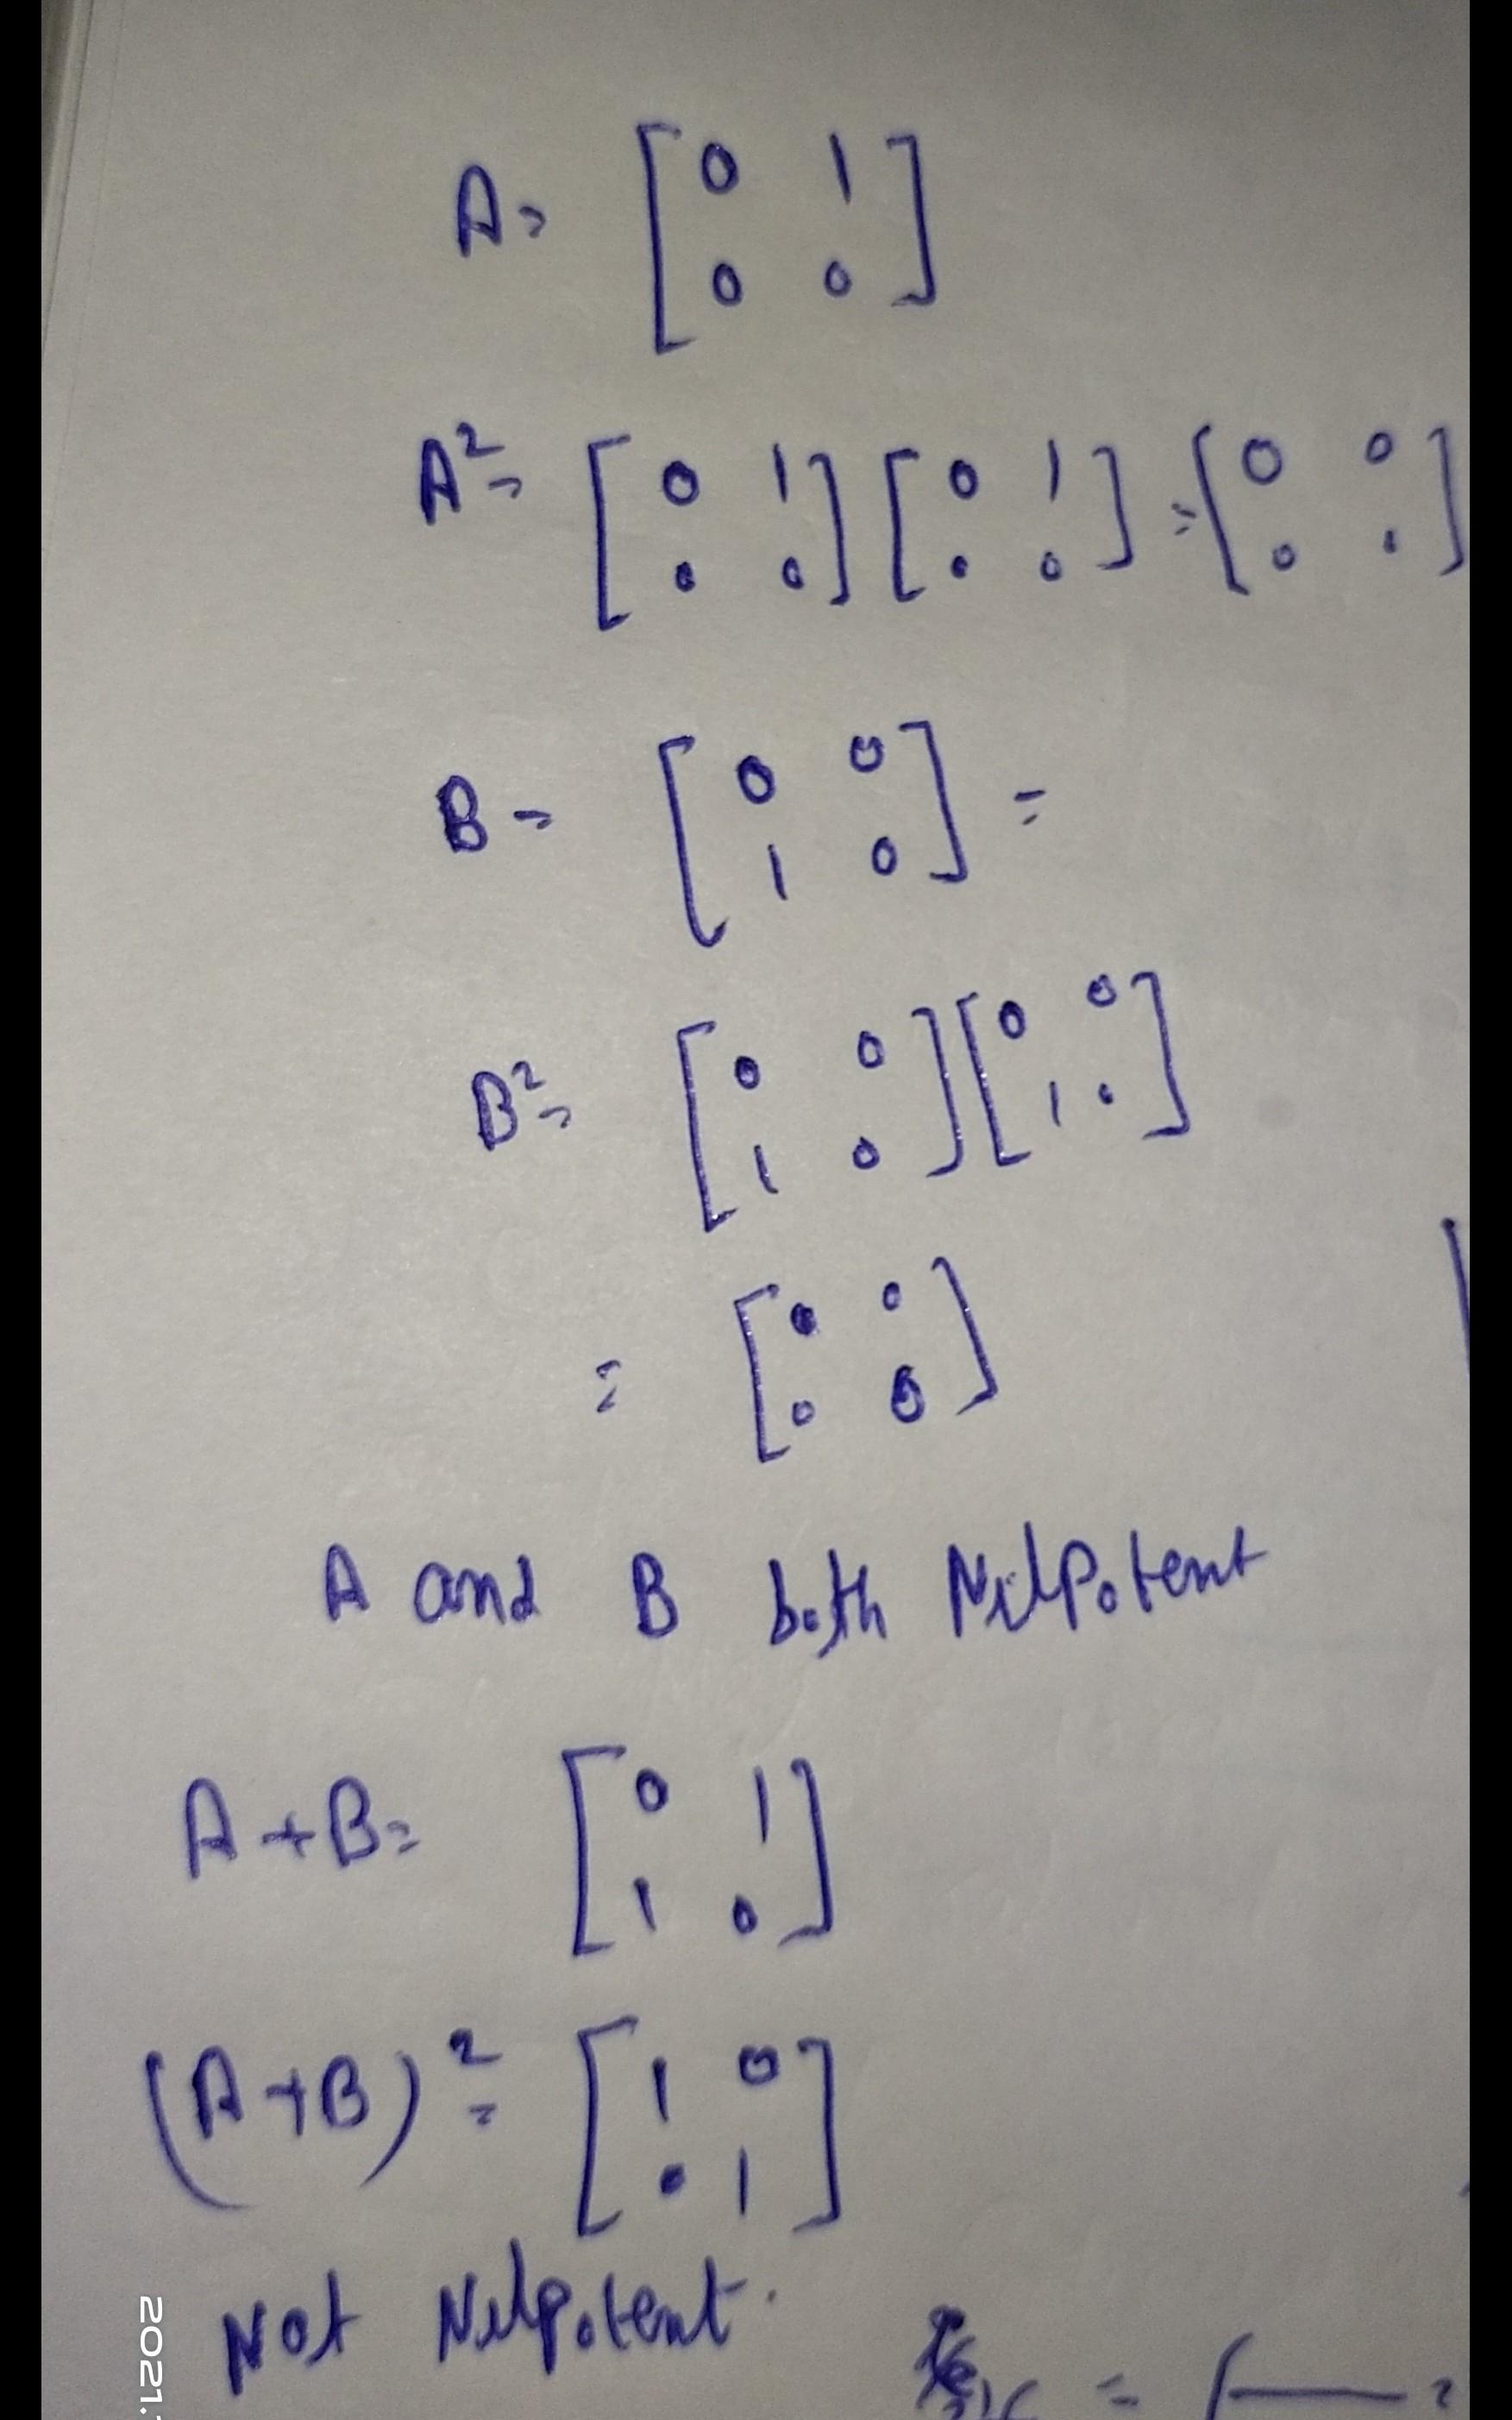 A = [ 0 1
0 0 ]
A² = [ 0 1 ] [ 0 1 ] = [ 0 0 ]
[ 0 0 ] [ 0 0 ] [ 0 0 ]
B = [ 0 0 ] =
[ 1 0 ]
B² = [ 0 0 ] [ 0 0 ]
[ 1 0 ] [ 1 0 ]
= [ 0 0 ]
[ 0 0 ]
A and B both NilPotent
A + B = [ 0 1 ]
[ 1 0 ]
(A + B)² = [ 1 0 ]
[ 0 1 ]
Not Nilpotent.
2021.